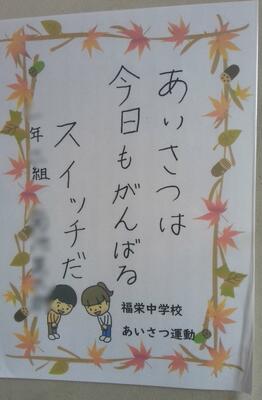 あいさつは
今日もがんばる
スイッチだ
年 組
福栄中学校
あいさつ運動